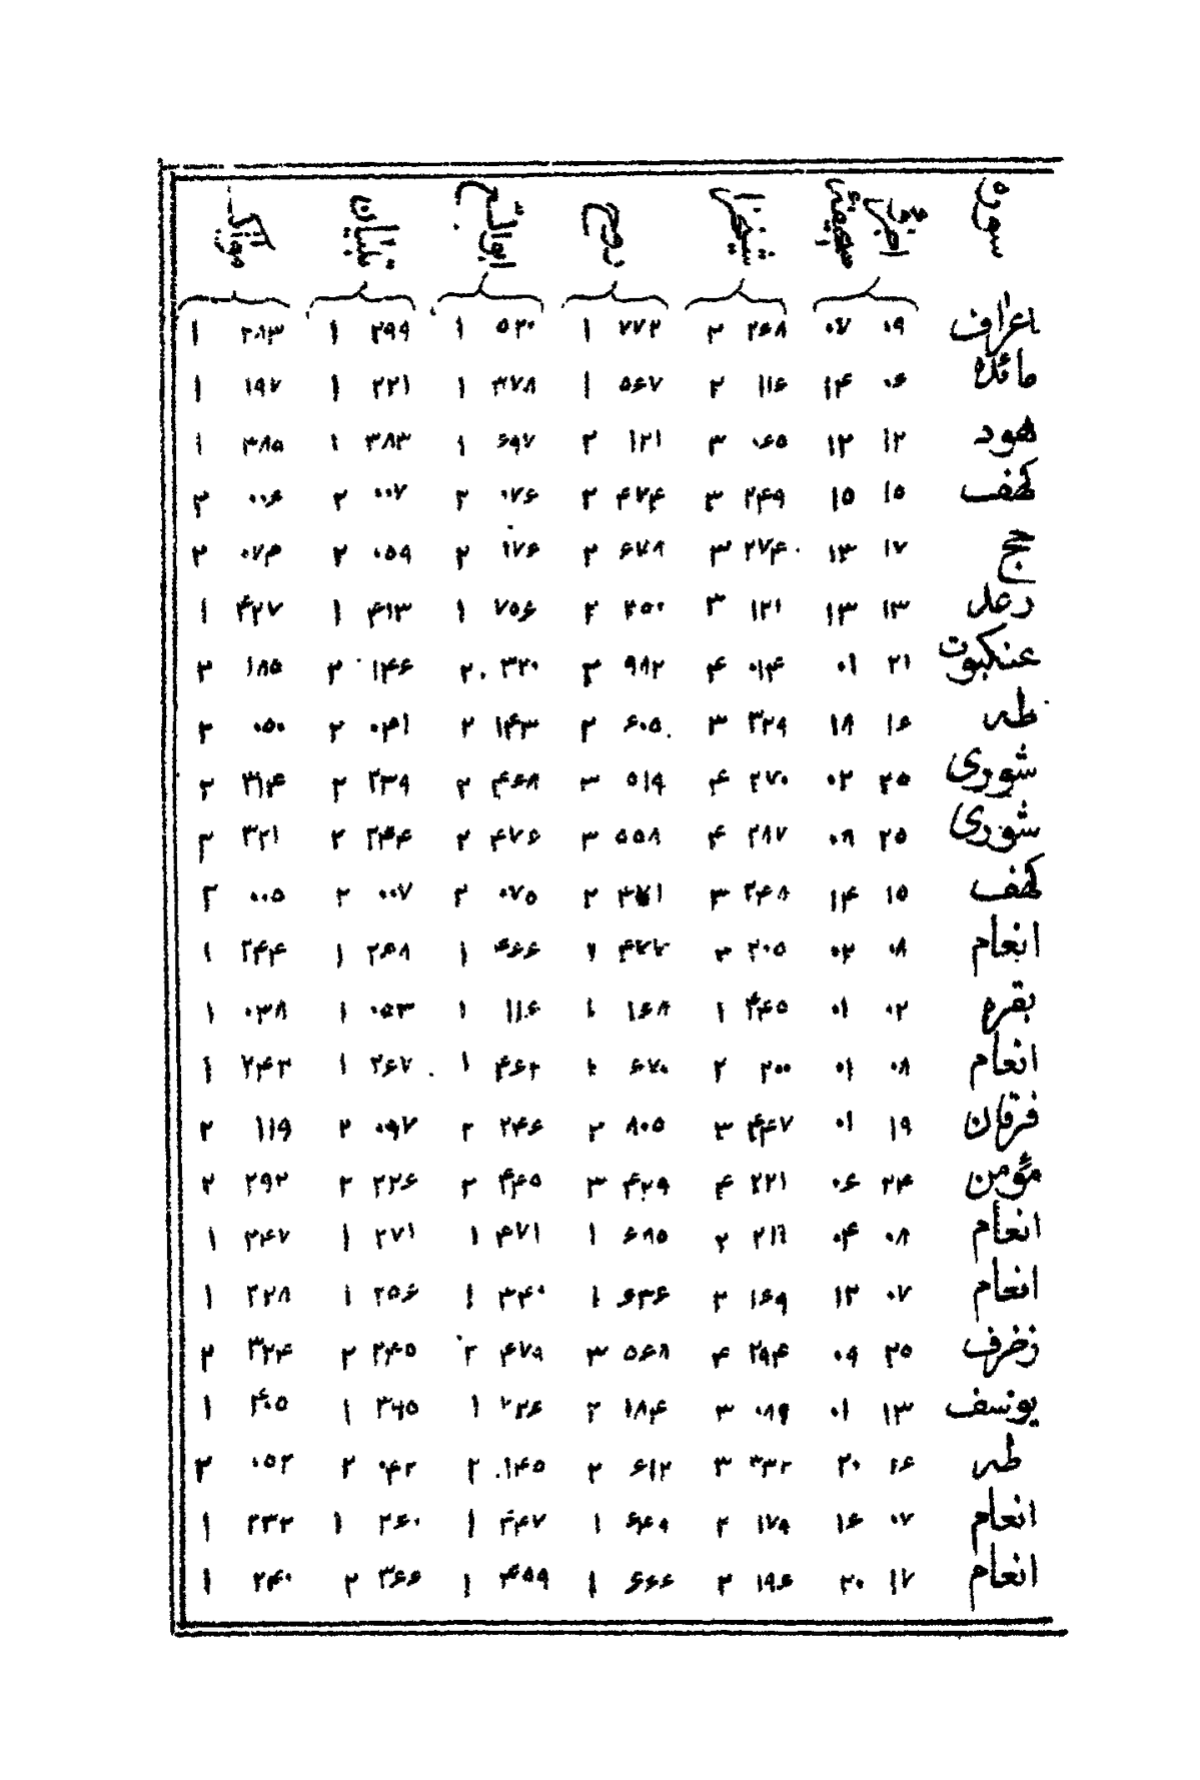 سوره اجزاء صحیفه شیخزاده روح ابوالسع تبیان مواکب
اعراف ۰۹ ۰۷ ۲۶۸ ۲ ۷۷۲ ۱ ۵۲۰ ۱ ۲۹۹ ۱ ۲۸۳ ۱
مائده ۰۶ ۱۴ ۱۱۶ ۲ ۵۶۷ ۱ ۳۷۸ ۱ ۲۲۱ ۱ ۱۹۷ ۱
هود ۱۲ ۱۲ ۰۶۵ ۳ ۱۲۱ ۲ ۶۹۷ ۱ ۳۸۳ ۱ ۳۸۵ ۱
کهف ۱۵ ۱۵ ۲۴۹ ۳ ۴۷۴ ۲ ۰۷۶ ۲ ۰۰۷ ۲ ۰۰۶ ۲
حج ۱۷ ۱۳ ۲۷۴ ۳ ۶۷۸ ۲ ۱۷۶ ۲ ۰۵۹ ۲ ۰۷۴ ۲
رعد ۱۳ ۱۳ ۱۲۱ ۳ ۲۵۰ ۲ ۷۵۶ ۱ ۴۱۳ ۱ ۴۲۷ ۱
عنکبوت ۲۱ ۰۱ ۰۱۴ ۴ ۹۸۲ ۲ ۳۲۰ ۲ ۱۴۶ ۲ ۱۸۵ ۲
طه ۱۶ ۱۸ ۳۲۹ ۳ ۶۰۵ ۲ ۱۴۳ ۲ ۰۴۱ ۲ ۰۵۰ ۲
شوری ۲۵ ۰۲ ۲۷۰ ۴ ۵۱۹ ۳ ۴۶۸ ۲ ۲۳۹ ۲ ۳۱۴ ۲
شوری ۲۵ ۰۸ ۲۸۷ ۴ ۵۵۸ ۳ ۴۷۶ ۲ ۲۴۴ ۲ ۳۲۱ ۲
کهف ۱۵ ۱۴ ۲۴۸ ۳ ۲ ۰۷۵ ۲ ۰۰۷ ۲ ۰۰۵ ۲
انعام ۰۸ ۰۲ ۲۰۵ ۲ ۶۷۷ ۱ ۴۶۶ ۱ ۲۶۸ ۱ ۲۴۴ ۱
بقره ۰۲ ۰۱ ۴۶۵ ۱ ۱۶۸ ۱ ۱۱۶ ۱ ۰۵۳ ۱ ۰۳۸ ۱
انعام ۰۸ ۰۱ ۲۰۰ ۲ ۶۷۰ ۱ ۴۶۲ ۱ ۲۶۷ ۱ ۲۴۳ ۱
فرقان ۱۹ ۰۱ ۴۴۷ ۳ ۸۰۵ ۲ ۲۴۶ ۲ ۰۹۷ ۲ ۱۱۹ ۲
مؤمن ۲۴ ۰۶ ۲۲۱ ۴ ۴۲۹ ۳ ۴۴۵ ۲ ۲۲۶ ۲ ۲۹۲ ۲
انعام ۰۸ ۰۴ ۲۱۱ ۲ ۶۸۵ ۱ ۴۷۱ ۱ ۲۷۱ ۱ ۲۴۷ ۱
انعام ۰۷ ۱۲ ۱۶۹ ۲ ۶۳۶ ۱ ۴۴۰ ۱ ۲۵۶ ۱ ۲۲۸ ۱
زخرف ۲۵ ۰۹ ۲۹۴ ۴ ۵۶۸ ۳ ۴۷۹ ۲ ۲۴۵ ۲ ۳۲۴ ۲
یوسف ۱۳ ۰۱ ۰۸۹ ۳ ۱۸۴ ۲ ۷۲۶ ۱ ۳۹۵ ۱ ۴۰۵ ۱
طه ۱۶ ۲۰ ۳۳۲ ۳ ۶۱۲ ۲ ۱۴۵ ۲ ۰۴۲ ۲ ۰۵۲ ۲
انعام ۰۷ ۱۶ ۱۷۹ ۲ ۶۴۹ ۱ ۴۴۷ ۱ ۲۶۰ ۱ ۲۳۲ ۱
انعام ۱۷ ۲۰ ۱۹۶ ۲ ۶۶۶ ۱ ۴۵۹ ۱ ۳۶۶ ۲ ۲۴۰ ۱